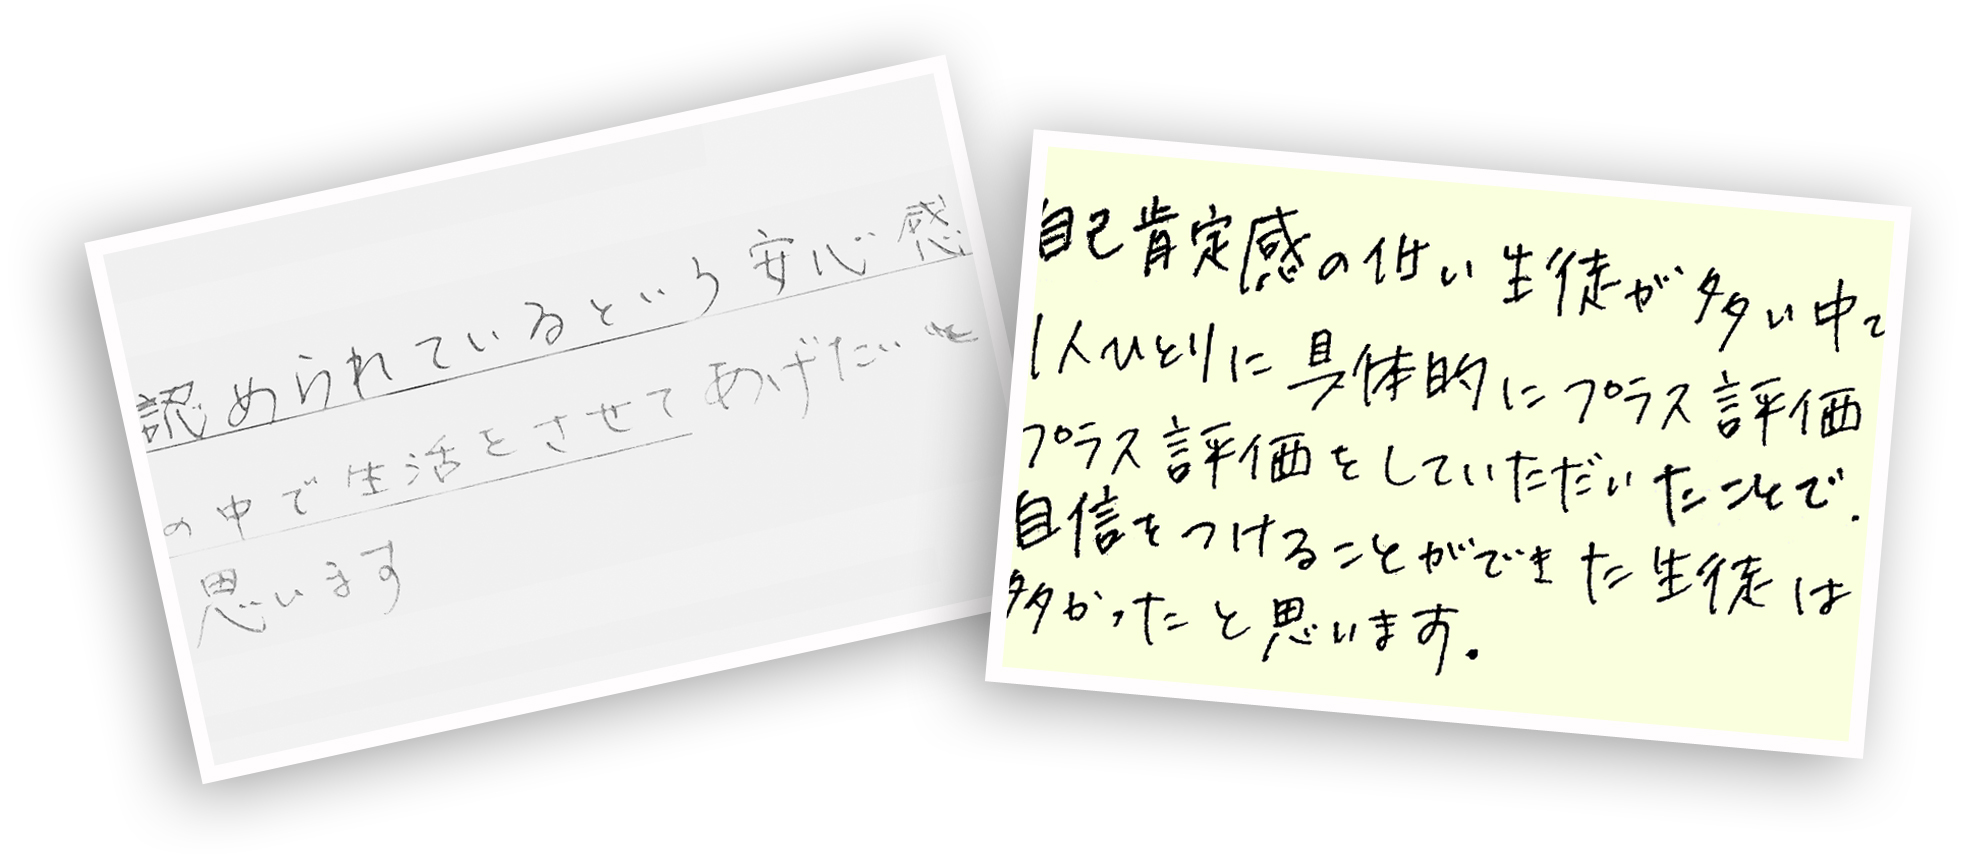 認められているという安心感
の中で生活をさせてあげたいと
思います
自己肯定感の低い生徒が多い中で
1人ひとりに具体的にプラス評価
プラス評価をしていただいたことで.
自信をつけることができた生徒は
多かったと思います.